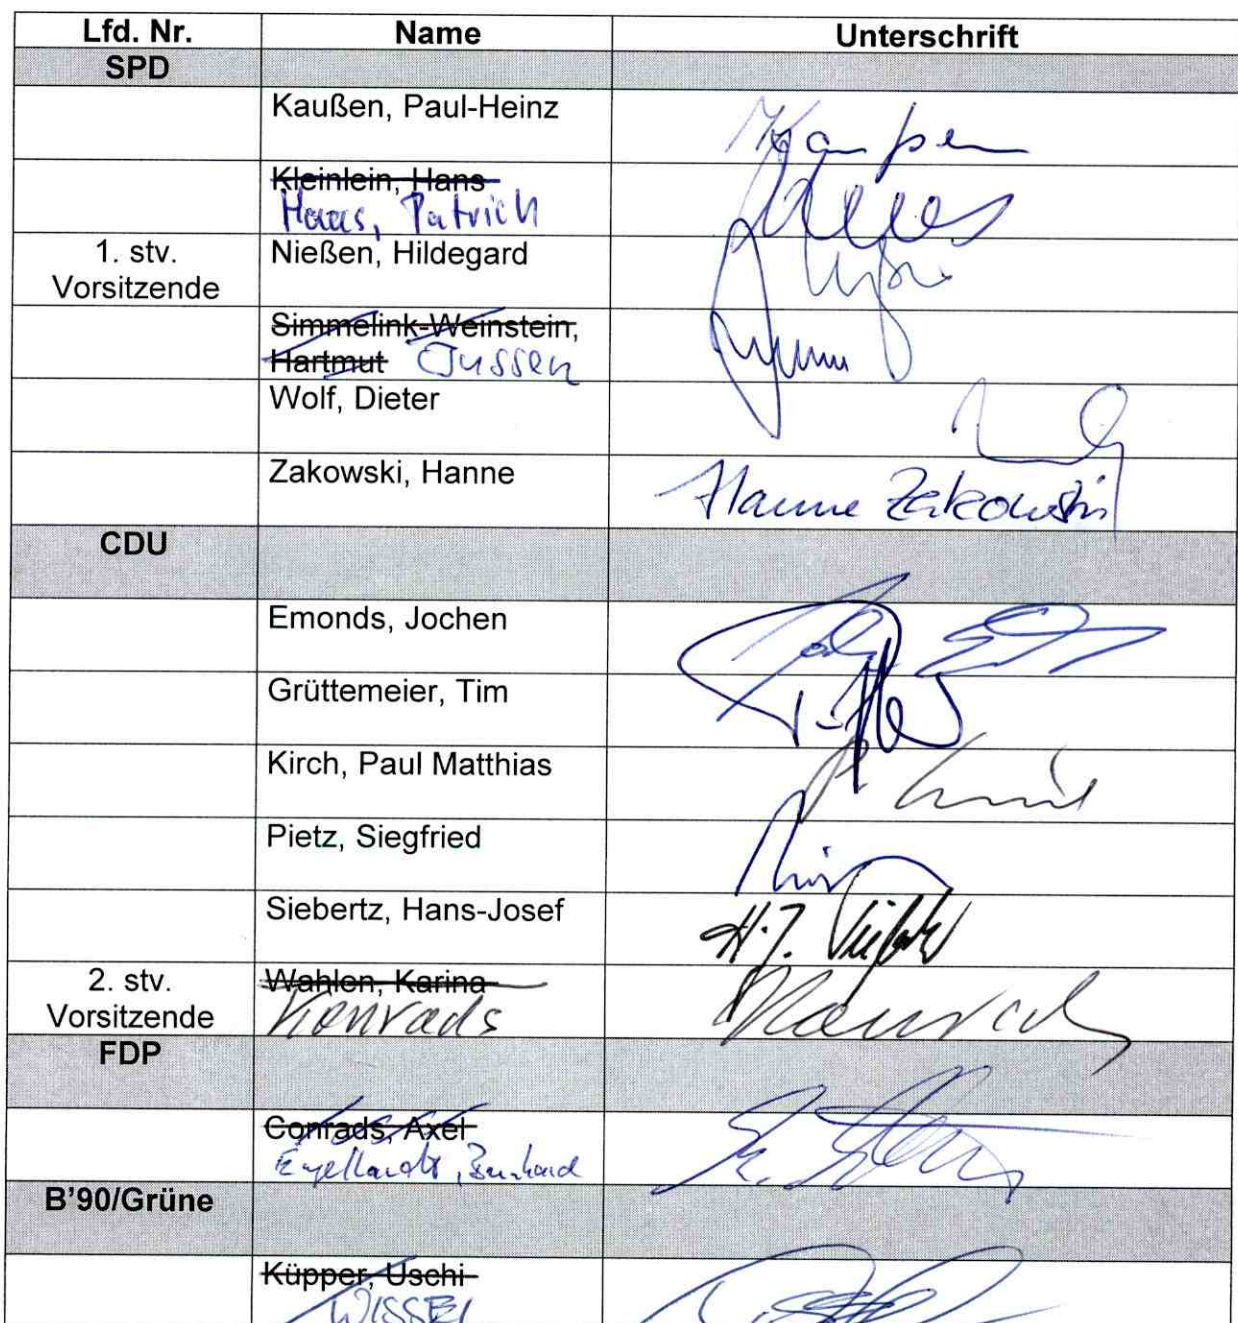 Lfd. Nr. Name Unterschrift
SPD
Kaußen, Paul-Heinz
Kleinlein, Hans
Haas, Patrick
1. stv. Vorsitzende Nießen, Hildegard
Simmelink-Weinstein,
Hartmut Jussen
Wolf, Dieter
Zakowski, Hanne Hanne Zakowski
CDU
Emonds, Jochen
Grüttemeier, Tim
Kirch, Paul Matthias
Pietz, Siegfried
Siebertz, Hans-Josef
2. stv. Vorsitzende Wahlen, Karina
Konrads
FDP
Conrads, Axel
Engelhardt, Bernhard
B'90/Grüne
Küpper, Uschi
WISSEL